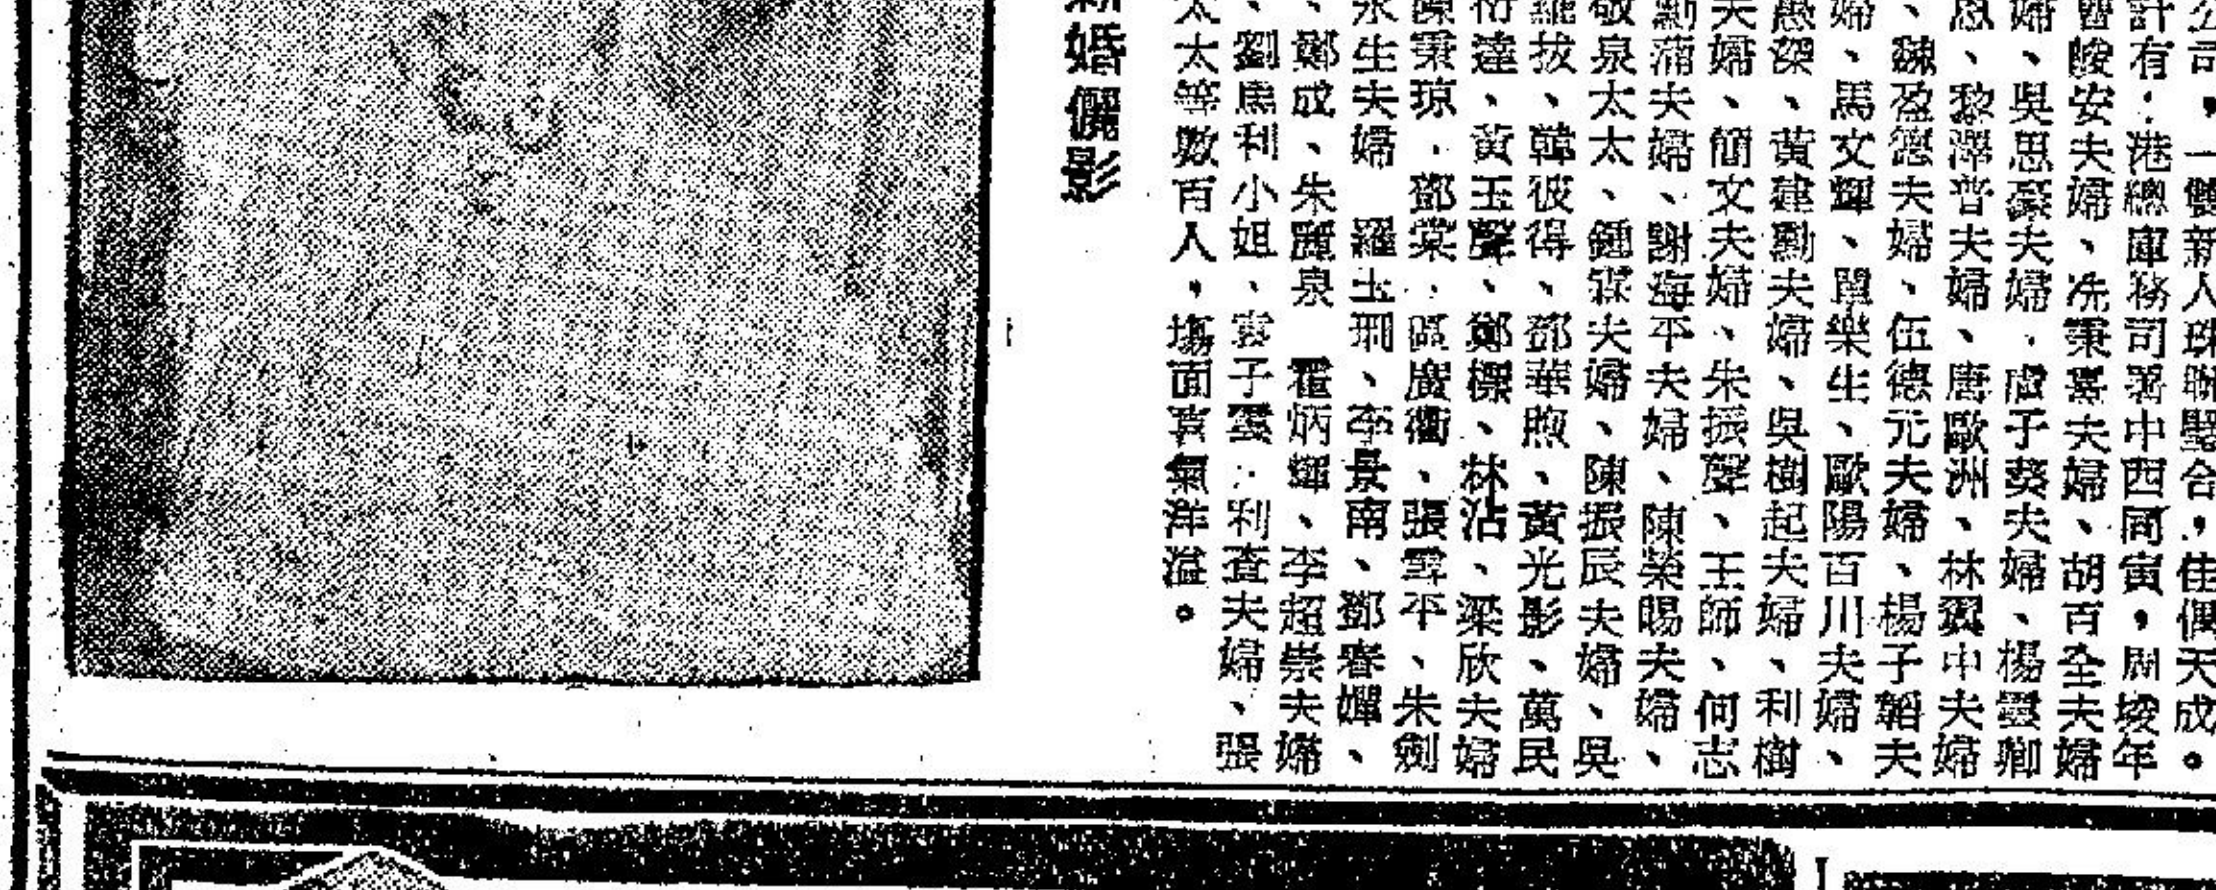 公司，一雙新人珠聯璧合，佳偶天成。
計有：港總庫務司署中西同寅，周埈年
醫峻安夫婦、冼秉熹夫婦、胡百全夫婦
婦、吳思豪夫婦、盧子葵夫婦、楊靈卿
恩、黎澤普夫婦、唐歐洲、林翼中夫婦
、魏盈德夫婦、伍德元夫婦、楊子韜夫
婦、馬文輝、單樂生、歐陽百川夫婦、
愚深、黃建勳夫婦、吳樹起夫婦、利樹
夫婦、簡文夫婦、朱振聲、王師、何志
勳蒲夫婦、謝海平夫婦、陳榮賜夫婦、
敬泉太太、鍾霖夫婦、陳振辰夫婦、吳
龍拔、韓彼得、鄧華煦、黃光彭、萬民
衍達、黃玉聲、鄭標、林沾、梁欣夫婦
陳秉琼、鄧棠、區廣衢、張雪不、朱劍
永生夫婦 羅士刑、李景南、鄧春嬋、
、鄭成、朱麗泉 霍炳輝、李超崇夫婦
、劉馬利小姐、袁子雲、利查夫婦、張
太太等數百人，塲面喜氣洋溢。
新婚儷影